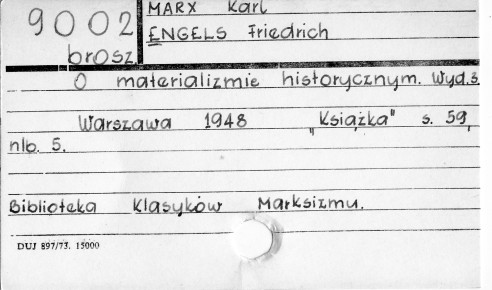 9002
brosz.
MARX Karl
ENGELS Friedrich
O materializmie historycznym. Wyd. 3.
Warszawa 1948 „Książka" s. 59,
nlb. 5.
Biblioteka Klasyków Marksizmu.
DUJ 897/73. 15000